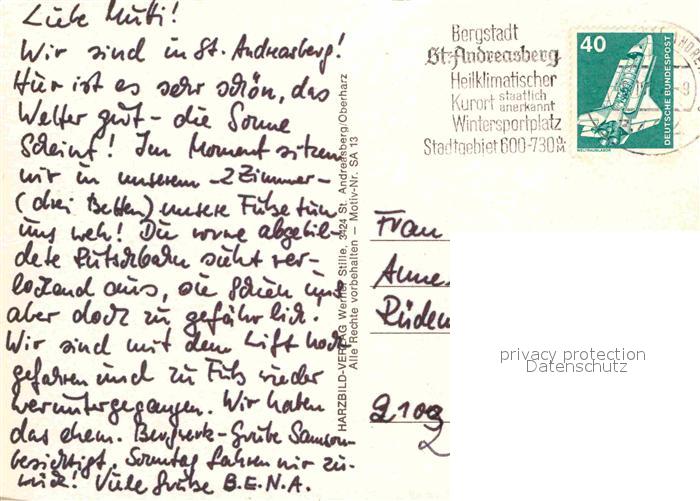 Liebe Mutti!
Wir sind in St. Andreasberg!
Hier ist es sehr schön, das
Wetter gut - die Sonne
scheint! Im Moment sitzen
wir in unserem -2 Zimmer-
(drei Betten) unsere Füße tun
uns weh! Die vorne abgebil-
dete Rutschbahn sieht ver-
lockend aus, sie schien uns
aber doch zu gefährlich.
Wir sind mit dem Lift hoch
gefahren und zu Fuß wieder
heruntergegangen. Wir haben
das ehem. Bergwerk-Grube Samson
besichtigt. Sonntag fahren wir zu-
rück! Viele Grüße B.E.N.A.
HARZBILD-VERLAG Werner Stille, 3424 St. Andreasberg/Oberharz
Alle Rechte vorbehalten — Motiv-Nr. SA 13
Bergstadt
St. Andreasberg
Heilklimatischer
Kurort staatlich anerkannt
Wintersportplatz
Stadtgebiet 600-730 m
40
DEUTSCHE BUNDESPOST
WELTRAUMLABOR
Frau
Anne
Rüden
2109
2
privacy protection
Datenschutz